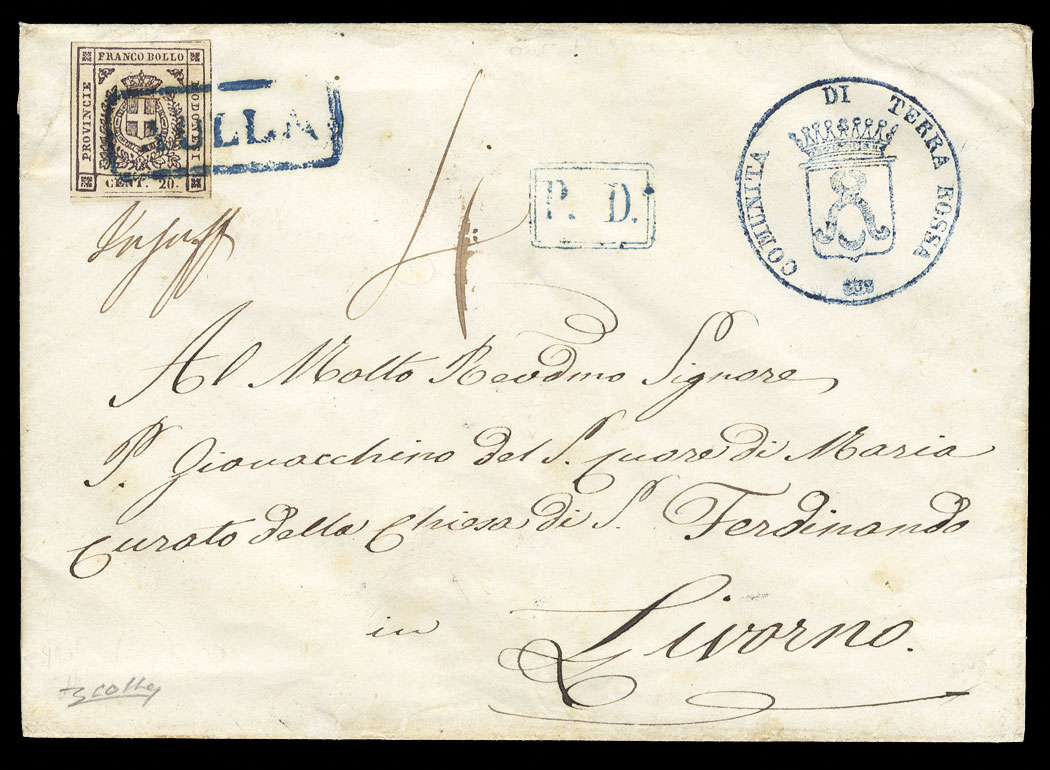 FRANCO BOLLO
PROVINCIE
MODONESI
CENT. 20.
P. D.
COMUNITA DI TERRA ROSSA
Insuff
4
Al Molto Revdmo Signore
P. Giovacchino del S. Cuore di Maria
Curato della Chiesa di S. Ferdinando
in Livorno.